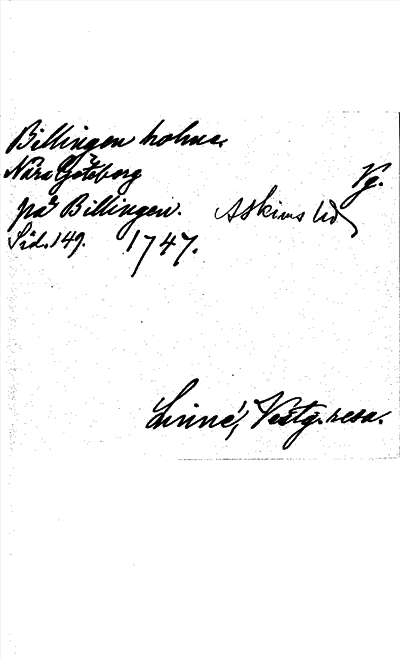 Billingen holmar
Nära Göteborg
Vg.
på Billingen. Askims hd
Sid. 149. 1747.
Linné, Vestg. resa.